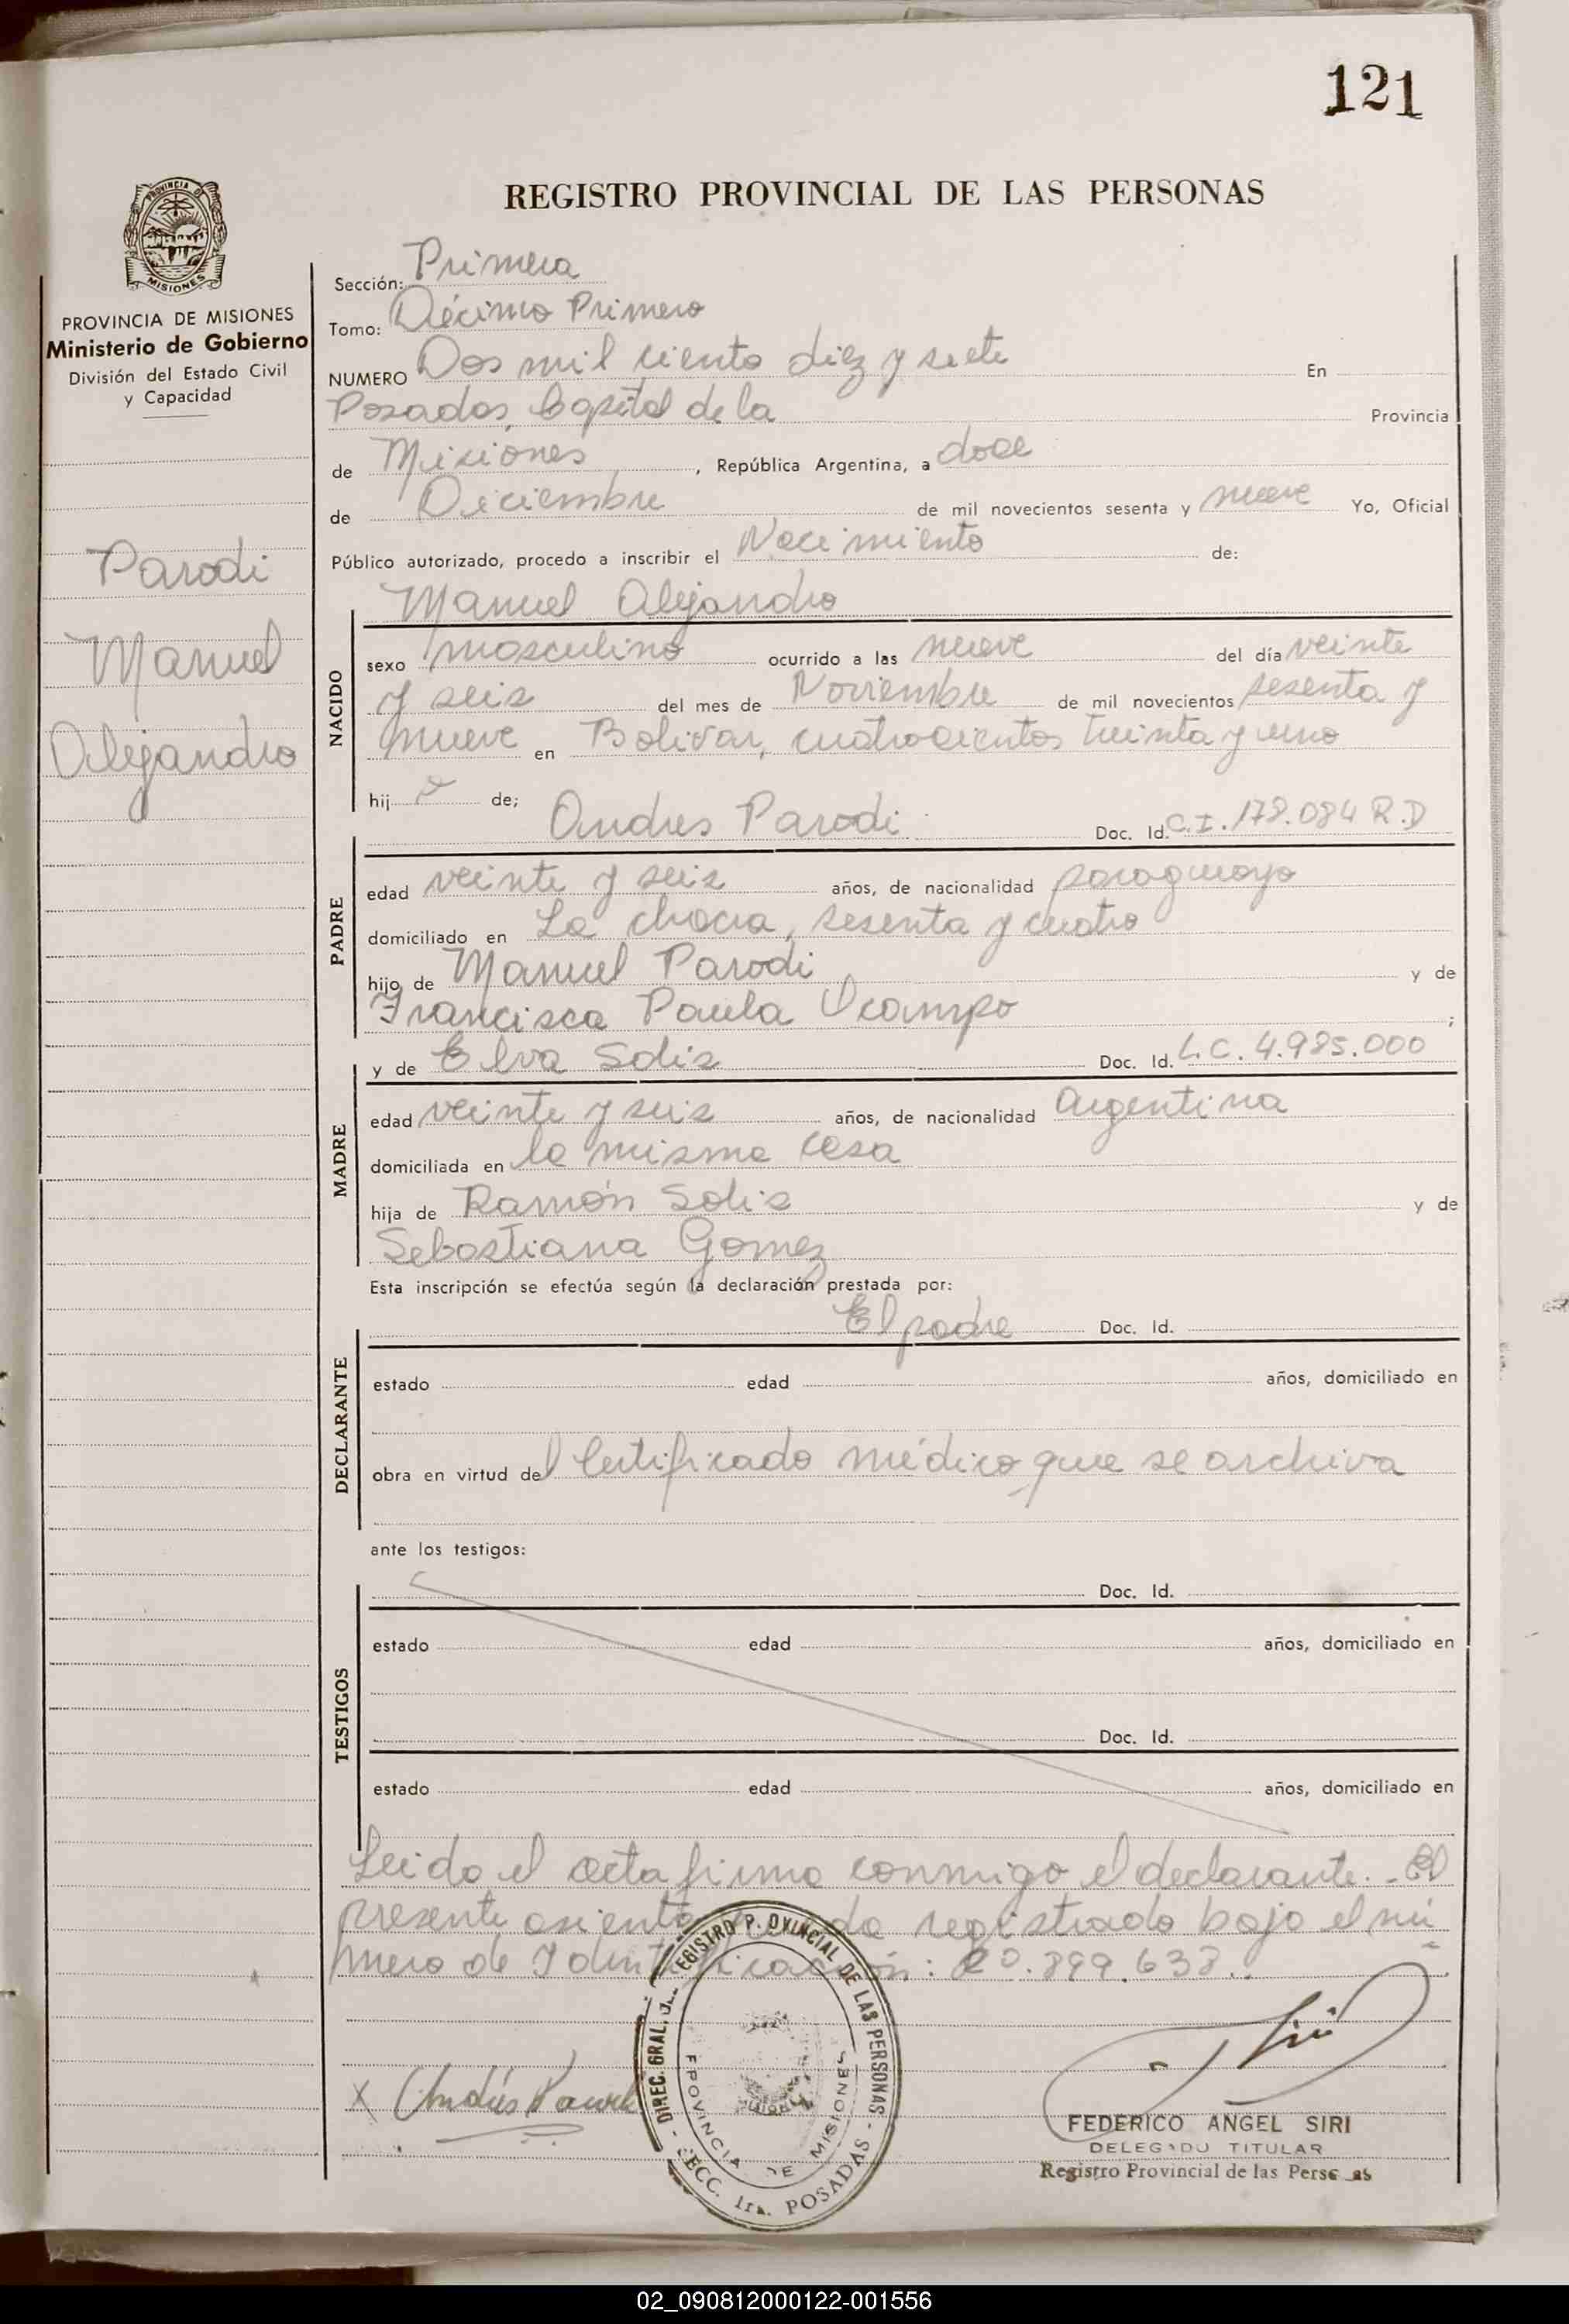 121
PROVINCIA DE
MISIONES
REGISTRO PROVINCIAL DE LAS PERSONAS
PROVINCIA DE MISIONES
Ministerio de Gobierno
División del Estado Civil
y Capacidad
Parodi
Manuel
Alejandro
Sección: Primera
Tomo: Décimo Primero
NUMERO Dos mil ciento diez y siete En
Posadas, Capital de la Provincia
de Misiones, República Argentina, a doce
de Diciembre de mil novecientos sesenta y nueve Yo, Oficial
Público autorizado, procedo a inscribir el Nacimiento de:
Manuel Alejandro
NACIDO
sexo masculino ocurrido a las nueve del día veinte
y seis del mes de Noviembre de mil novecientos sesenta y
nueve en Bolivar, cuatrocientos treinta y uno
hij o de;
Andres Parodi Doc. Id. C.I. 178.084 R.D
PADRE
edad veinte y seis años, de nacionalidad paraguayo
domiciliado en La chacra, sesenta y cuatro
hijo de Manuel Parodi y de
Francisca Paula Ocampo ;
y de Elva Solis Doc. Id. L.C. 4.985.000
MADRE
edad veinte y seis años, de nacionalidad Argentina
domiciliada en la misma casa
hija de Ramón Solis y de
Sebastiana Gomez
Esta inscripción se efectúa según la declaración prestada por:
El padre Doc. Id.
DECLARANTE
estado edad años, domiciliado en
obra en virtud del Certificado médico que se archiva
ante los testigos:
Doc. Id.
TESTIGOS
estado edad años, domiciliado en
Doc. Id.
estado edad años, domiciliado en
Leido el acta firma conmigo el declarante.- El
presente asiento da registrado bajo el nú
mero de Identificación: 20.899.638.
DIREC. GRAL. REGISTRO PROVINCIAL DE LAS PERSONAS
PROVINCIA DE MISIONES
SECC. 1ra. POSADAS
x Andrés Parodi
FEDERICO ANGEL SIRI
DELEGADO TITULAR
Registro Provincial de las Personas
02_090812000122-001556